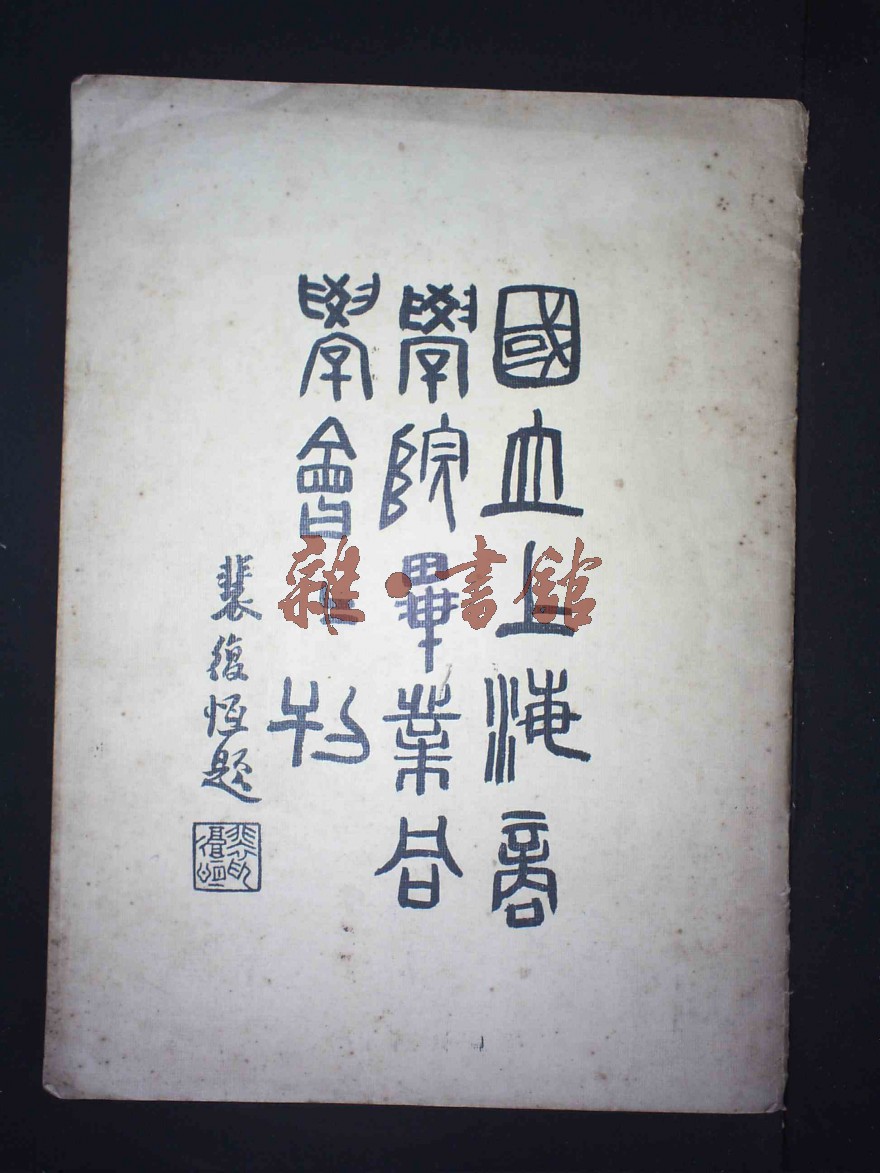 國立上海商
學院畢業同
學會刊
裴復恆題
雜·書館